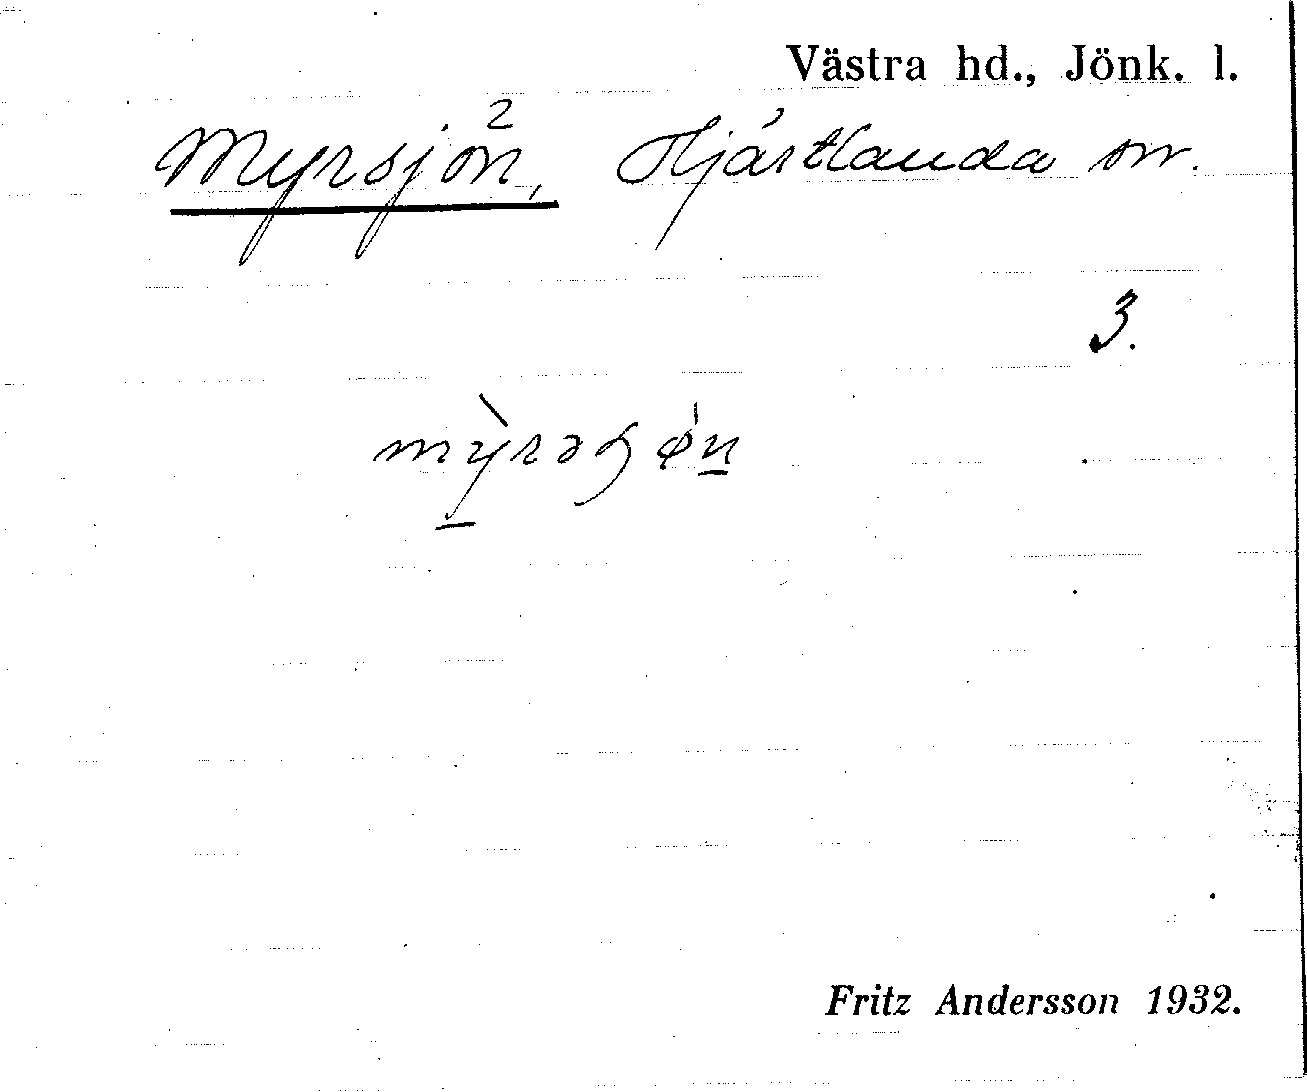 Västra hd., Jönk. l.
Myrsjön, Hjärtlanda sn.
3.
Fritz Andersson 1932.